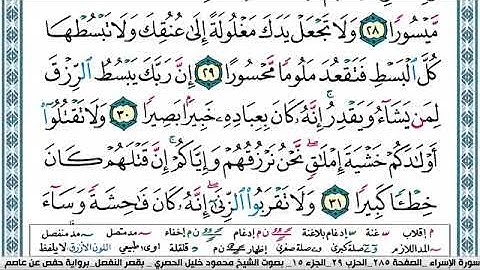 مَّيْسُورًا ٢٨ وَلَا تَجْعَلْ يَدَكَ مَغْلُولَةً إِلَىٰ عُنُقِكَ وَلَا تَبْسُطْهَا
كُلَّ ٱلْبَسْطِ فَتَقْعُدَ مَلُومًا مَّحْسُورًا ٢٩ إِنَّ رَبَّكَ يَبْسُطُ ٱلرِّزْقَ
لِمَن يَشَآءُ وَيَقْدِرُ ۚ إِنَّهُۥ كَانَ بِعِبَادِهِۦ خَبِيرًۢا بَصِيرًا ٣٠ وَلَا تَقْتُلُوٓا۟
أَوْلَٰدَكُمْ خَشْيَةَ إِمْلَٰقٍ ۖ نَّحْنُ نَرْزُقُهُمْ وَإِيَّاكُمْ ۚ إِنَّ قَتْلَهُمْ كَانَ
خِطْـًٔا كَبِيرًا ٣١ وَلَا تَقْرَبُوا۟ ٱلزِّنَىٰٓ ۖ إِنَّهُۥ كَانَ فَٰحِشَةً وَسَآءَ
م إقلاب غنة إدغام بلاغنة إدغام إخفاء مد متصل مد منفصل
مد اللازم صلة كبرى صلة صغرى إظهار قلقلة طبيعي اللون الأزرق لا يلفظ
سورة الإسراء_ الصفحة ٢٨٥_ الحزب ٢٩_ الجزء ١٥_ بصوت الشيخ محمود خليل الحصري _ بقصر المنفصل_ برواية حفص عن عاصم